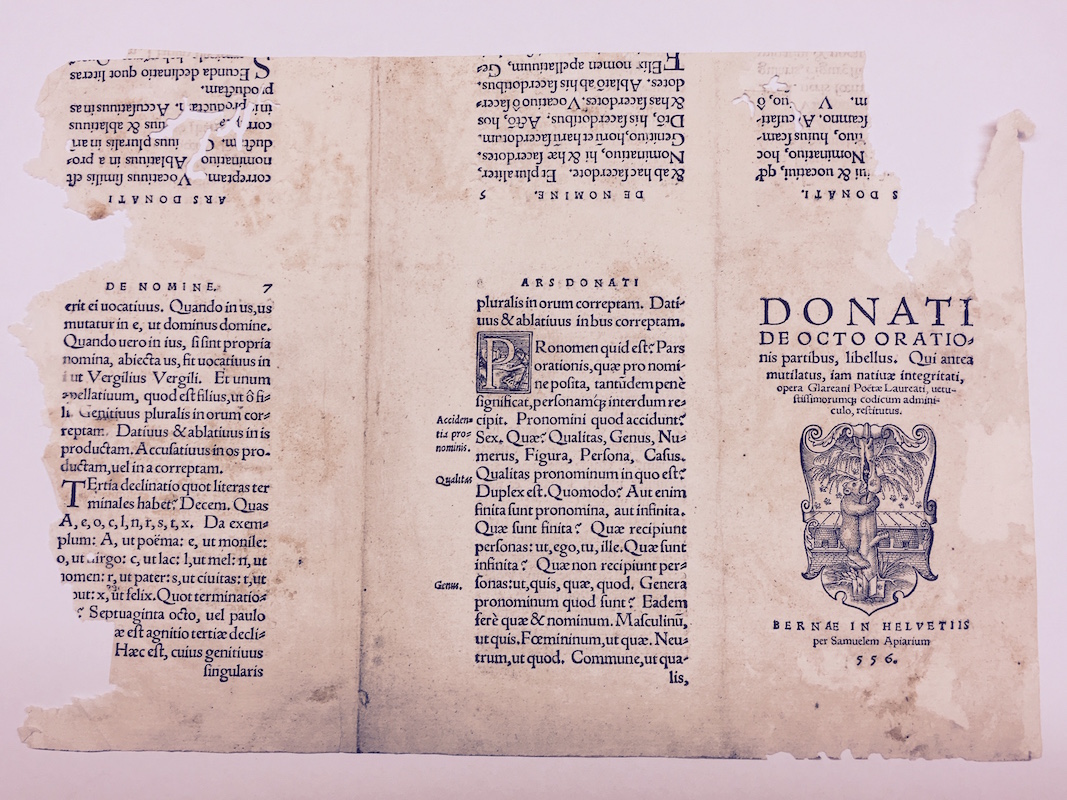 ARS DONATI
correptam. Vocatiuus similis est
nominatiuo. Ablatiuus in a pro-
ductam. iuus pluralis in arū
uus & ablatiuus
productam. Accusatiuus in as
productam.
SEcunda declinatio quot literas
DE NOMINE. 5
& ab hac sacerdote. Et pluraliter,
Nominatiuo, hi & hæ sacerdotes.
Genitiuo, horū et harū sacerdotum.
Dtō, his sacerdotibus. Actō, hos
& has sacerdotes. Vocatiuo ô sacer-
dotes. Ablatō ab his sacerdotibus.
FElix nomen apellatiuum, Ge-
S DONATI.
tui & uocatiui, qđ
Nominatiuo, hoc
tiuo, huius scam
scamno. Accusati
m. V uo, ô
DE NOMINE. 7
erit ei uocatiuus. Quando in us, us
mutatur in e, ut dominus domine.
Quando uero in ius, si sint propria
nomina, abiecta us, fit uocatiuus in
i ut Vergilius Vergili. Et unum
apellatiuum, quod est filius, ut ô fi-
li. Genitiuus pluralis in orum cor-
reptam. Datiuus & ablatiuus in is
productam. Accusatiuus in os pro-
ductam, uel in a correptam.
TErtia declinatio quot literas ter
minales habet? Decem. Quas
A, e, o, c, l, n, r, s, t, x. Da exem-
plum: A, ut poëma: e, ut monile:
o, ut uirgo: c, ut lac: l, ut mel: n, ut
nomen: r, ut pater: s, ut ciuitas: t, ut
put: x, ut felix. Quot terminatio-
? Septuaginta octo, uel paulo
æ est agnitio tertiæ decli-
Hæc est, cuius genitiuus
singularis
8 ARS DONATI
pluralis in orum correptam. Dati-
uus & ablatiuus in bus correptam.
PRonomen quid est? Pars
orationis, quæ pro nomi-
ne posita, tantūdem penè
significat, personamq́; interdum re-
cipit. Pronomini quod accidunt?
Acciden-
tia pro-
nominis.
Sex. Quæ? Qualitas, Genus, Nu-
merus, Figura, Persona, Casus.
Qualitas
Qualitas pronominum in quo est?
Duplex est. Quomodo? Aut enim
finita sunt pronomina, aut infinita.
Quæ sunt finita? Quæ recipiunt
personas: ut, ego, tu, ille. Quæ sunt
infinita? Quæ non recipiunt per-
Genus.
sonas: ut, quis, quæ, quod. Genera
pronominum quod sunt? Eadem
ferè quæ & nominum. Masculinū,
ut quis. Fœmininum, ut quæ. Neu-
trum, ut quod. Commune, ut qua-
lis,
DONATI
DE OCTO ORATIO-
nis partibus, libellus. Qui antea
mutilatus, iam natiuæ integritati,
opera Glareani Poëtæ Laureati, uetu-
stissimorumq; codicum admini-
culo, restitutus.
BERNAE IN HELVETIIS
per Samuelem Apiarium
556.